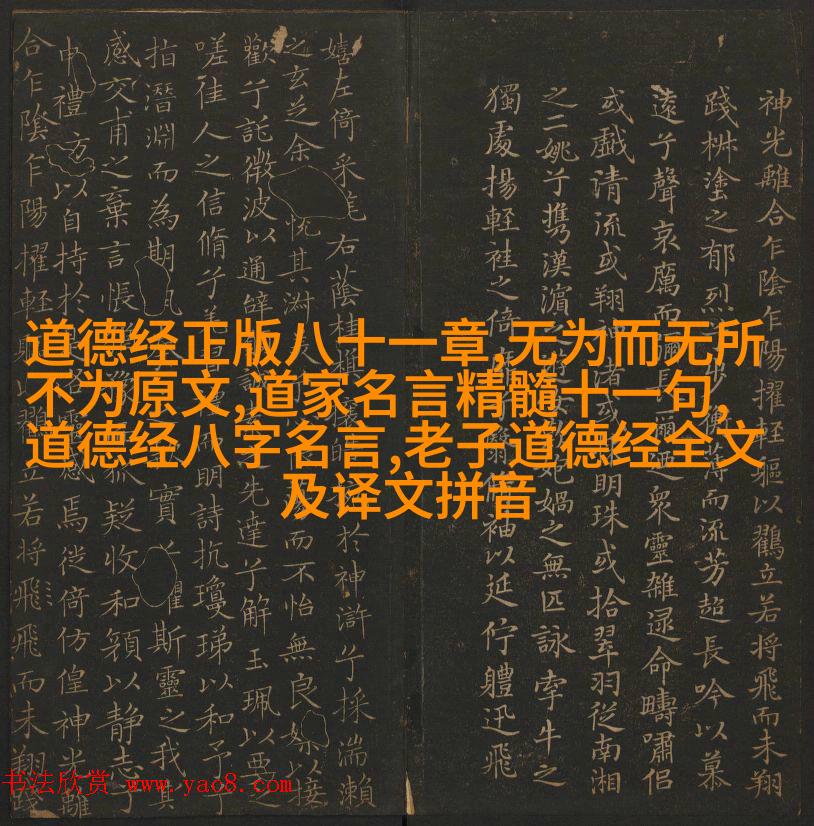 道德经正版八十一章,无为而无所
不为原文,道家名言精髓十一句,
道德经八字名言,老子道德经全文
及译文拼音
神光離合乍陰乍陽擢輕軀以鸛立若將飛而未翔
踐椒塗之郁烈步薄而流芳超長吟以慕
遠兮聲哀厲而彌長爾迺眾靈雜遝命疇嘯侶
或戲清流或翔渚或明珠或拾翠羽從南湘
之二姚兮攜漢濱媧之無匹詠牽牛之
獨處揚輕袿之倚袖以延佇軆迅飛
嬉左倚采旄右蔭桂於神滸兮採湍瀨
之玄芝余悅其淑而不怡無良媒以接
歡兮託微波以通辭先達兮解玉珮以要之
嗟佳人之信脩兮明詩抗瓊珶以和予兮
指潛淵而為期實兮懼斯靈之我其
感交甫之棄言悵狐疑收和顏以靜志兮
申禮方以自持於感焉徙倚仿偟神光離
合乍陰乍陽擢輕立若將飛飛而未翔踐
书法欣赏 www.yao8.com